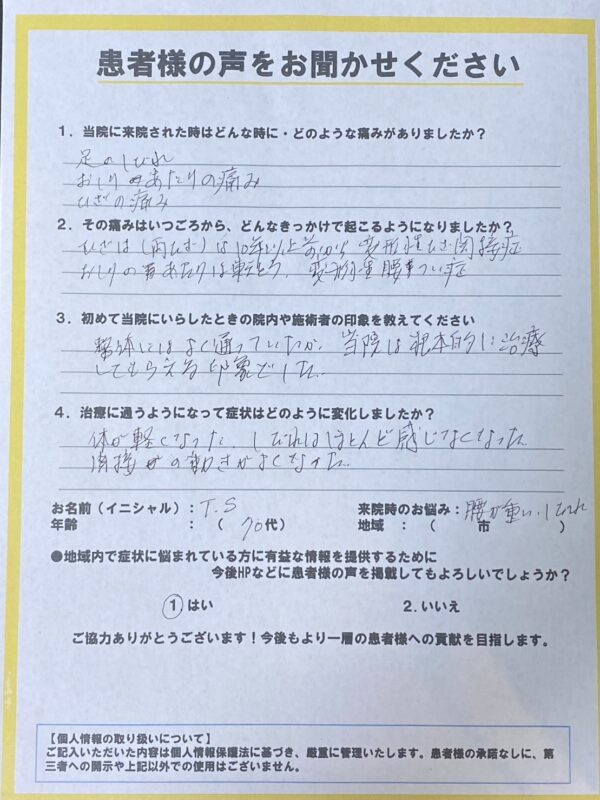 患者様の声をお聞かせください
1. 当院に来院された時はどんな時に・どのような痛みがありましたか？
足のしびれ
おしりのあたりの痛み
ひざの痛み
2. その痛みはいつごろから、どんなきっかけで起こるようになりましたか？
ひざは(両ひざ)は10年以上前から 変形性ひざ関接症
おしりのあたりは転とう、変形性腰つい症
3. 初めて当院にいらしたときの院内や施術者の印象を教えてください
整体にはよく通っていたが、当院は根本的に治療
してもらえる印象でした。
4. 治療に通うようになって症状はどのように変化しましたか？
体が軽くなった、しびれはほとんど感じなくなった
関接の動きがよくなった。
お名前（イニシャル）：T.S 来院時のお悩み：腰が重い、しびれ
年齢 ：（ 70代） 地域 ：（ 市 ）
●地域内で症状に悩まれている方に有益な情報を提供するために
今後HPなどに患者様の声を掲載してもよろしいでしょうか？
1 はい 2. いいえ
ご協力ありがとうございます！今後もより一層の患者様への貢献を目指します。
【個人情報の取り扱いについて】
ご記入いただいた内容は個人情報保護法に基づき、厳重に管理いたします。患者様の承諾なしに、第
三者への開示や上記以外での使用はございません。